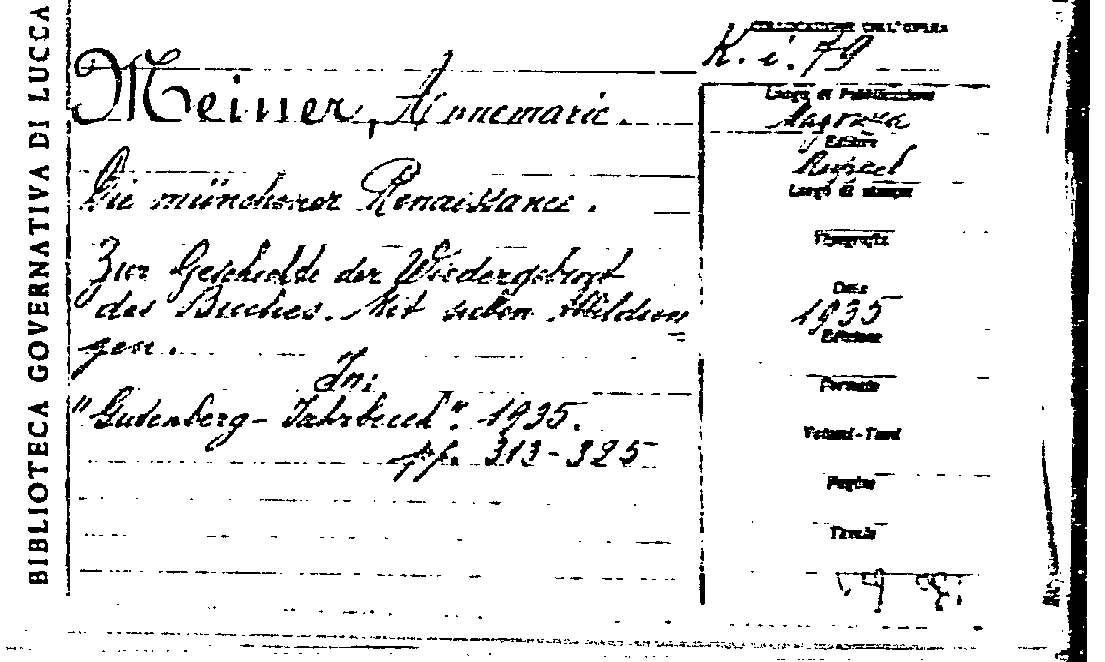 BIBLIOTECA GOVERNATIVA DI LUCCA
COLLOCAZIONE DELL'OPERA
K. i. 79
Meiner, Annemarie.
Die münchener Renaissance.
Zur Geschichte der Wiedergeburt
des Buches. Mit sieben Abbildun
gen.
In:
"Gutenberg-Jahrbuch". 1935.
pp. 313-325
Luogo di Pubblicazione
Magonza
Editore
Luogo di stampa
Tipografia
Data
1935
Edizione
Formato
Volumi-Tomi
Pagine
Tavole